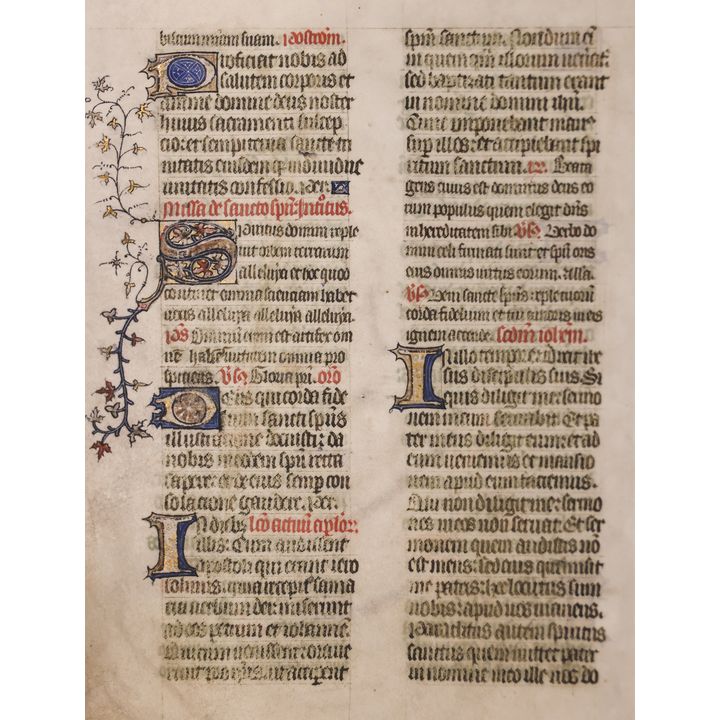 biscum miam suam. Postcom.
Proficiat nobis ad
salutem corporis et
anime domine deus noster
huius sacramenti suscep
cio: et sempiterna sancte tri
nitatis eiusdem q̃ individue
unitatis confessio. per.
Missa de sancto spũ. Introitus.
Spiritus domini reple
vit orbem terrarum
alleluya et hoc quod
continet omnia scienciam habet
vocis alleluya alleluya alleluya.
p̃s Omniũ enim est artifex om
nẽ habens virtutem omnia pro
spiciens. Vsq̃ Gloria pri. orõ
Deus qui corda fide
lium sancti spũs
illustracione docuisti: da
nobis in eodem spũ recta
sapere: et de eius semp con
solacione gaudere. per.
In diebus Lcõ actuũ aplor:
illis: Cum audissent
apostoli qui erant iero
solimis: quia recepisset sama
ria verbum dei: miserunt
ad eos petrum et iohannẽ.
Qui cum venissent: orave
runt pro eis: ut acciperent
spm̃ sanctum. Nondum eĩ
in quem q̃ illorum venerat:
sed baptizati tantum erant
in nomine domini ihũ.
Tunc imponebant manꝰ
super illos: et accipiebant spi
ritum sanctum. Beata
gens cuius est dominus deus eo
rum populus quem elegit dñs
in hereditatem sibi Vsq̃ Verbo do
mini celi firmati sunt et spũ oris
eius omnis virtus eorum. Alla.
Vsq̃ Veni sancte spũs reple tuorũ
corda fidelium et tui amoris in eis
ignem accende. Scdm̃ iohem.
In illo tempore: dixit ihe
sus discipulis suis. Si
quis diligit me: sermo
nem meum servabit. Et pa
ter meus diliget eum: et ad
eum veniemus et mansio
nem apud eum faciemus.
Qui non diligit me: sermo
nes meos non servat. Et ser
monem quem audistis nõ
est meus: sed eius qui misit
me patris. hec locutus sum
vobis: apud vos manens.
Paraclitus autem spiritus
sanctus quem mittet pater
in nomine meo ille vos do